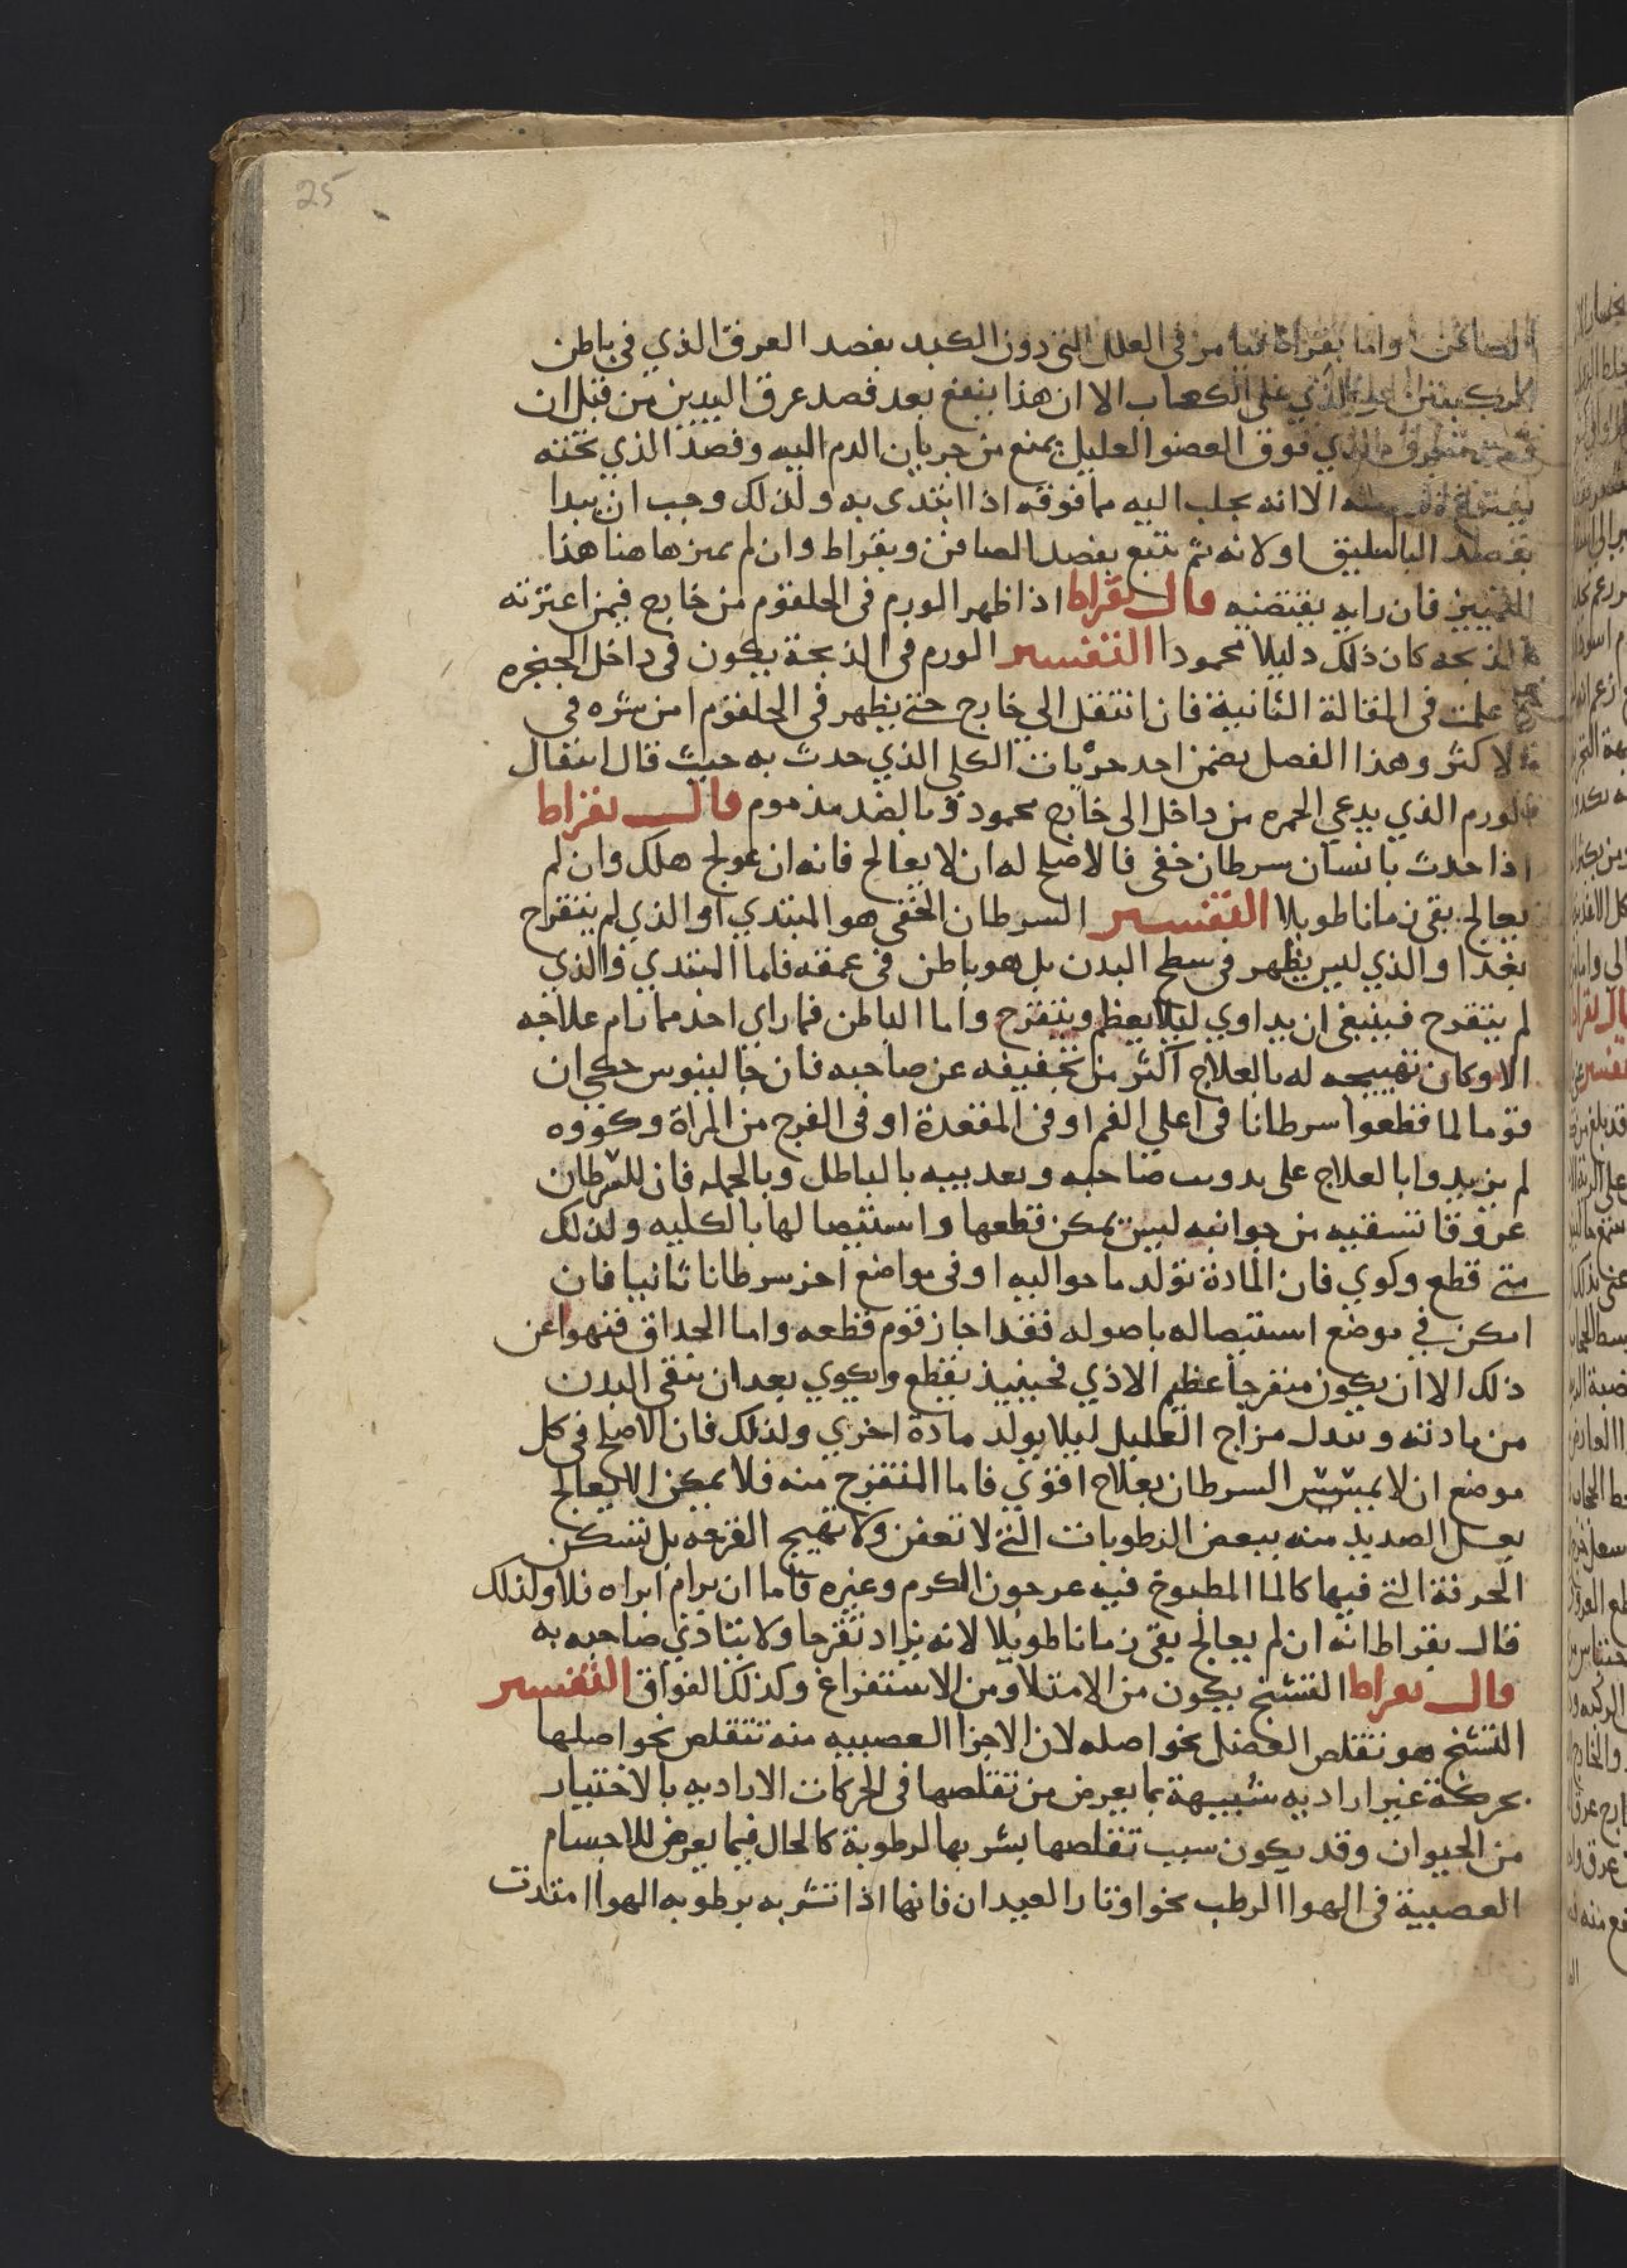 25
الصافن واما بقراط فيامر في العلل التي دون الكبد بفصد العرق الذي في باطن
الركبتين او الذي على الكعاب الا ان هذا ينفع بعد فصد عرق اليدين من قبل ان
الذي فوق العضو العليل يمنع من جريان الدم اليه وفصد الذي تحته
الا انه يجلب اليه مما فوقه اذا ابتدى به ولذلك وجب ان يبدا
بفصد الباسليق اولا ثم يتبع بفصد الصافن وبقراط وان لم يميزها هنا هذا
التمييز فان رايه يقتضيه قال بقراط اذا ظهر الورم في الحلقوم من خارج فيمن اعترته
الذبحه كان ذلك دليلا محمودا التفسير الورم في الذبحة يكون في داخل الحنجره
علمت في المقالة الثانية فان انتقل الي خارج حتي يظهر في الحلقوم امن شره في
الاكثر وهذا الفصل يضمن احد جزيات الكلى الذي حدث به حيث قال انتقال
الورم الذي يدعي الحمره من داخل الى خارج محمود وبالضد مذموم قال بقراط
اذا حدث بانسان سرطان خفى فالاصلح له ان لا يعالج فانه ان عولج هلك وان لم
يعالج بقى زمانا طويلا التفسير السرطان الخفى هو المبتدي او الذي لم يتقرح
بعد او الذي ليس يظهر في سطح البدن بل هو باطن في عمقه فاما المبتدي والذي
لم يتقرح فينبغى ان يداوي ليلا يعظم ويتقرح واما الباطن فما راي احد مما رام علاجه
الا وكان تهييجه له بالعلاج اكثر من تخفيفه عن صاحبه فان جالينوس حكى ان
قوما لما قطعوا سرطانا في اعلي الفم او في المقعدة او في الفرج من المراة وكووه
لم يزيدوا بالعلاج على صاحبه وتعذيبه بالباطل وبالجمله فان للسرطان
عروقا تسقيه من جوانبه ليس يمكن قطعها واستيصالها بالكليه ولذلك
متى قطع وكوي فان المادة تولد ما حواليه او في مواضع اخر سرطانا ثانيا فان
امكن في موضع استيصاله باصوله فقد اجاز قوم قطعه واما الحداق فنهوا عن
ذلك الا ان يكون متقرحا عظيم الاذي فحينيذ يقطع ويكوي بعد ان ينقى البدن
من مادته ويبدل مزاج العليل ليلا يولد مادة اخري ولذلك فان الاصلح في كل
موضع ان لا يمسس السرطان بعلاج اقوي فاما المتقرح منه فلا يمكن الا يعالج
بغسل الصديد منه ببعض الرطوبات التي لا تعفن ولا تهيج القرحه بل تسكن
الحرقة التي فيها كالما المطبوخ فيه عرجون الكرم وغيره فاما ان يرام ابراه فلا ولذلك
قال بقراط انه ان لم يعالج بقى زمانا طويلا لانه يزاد تقرحا ولا يتاذي صاحبه به
قال بقراط التشنج يكون من الامتلا ومن الاستفراغ وكذلك الفواق التفسير
التشنج هو تقلص العضل نحو اصله لان الاجزا العصبيه منه تتقلص نحو اصلها
بحركة غير اراديه شبيهة بما يعرض من تقلصها في الحركات الاراديه بالاختيار
من الحيوان وقد يكون سبب تقلصها بشربها الرطوبة كالحال فيما يعرض للاجسام
العصبية في الهوا الرطب نحو اوتار العيدان فانها اذا تشربه برطوبه الهوا امتدت